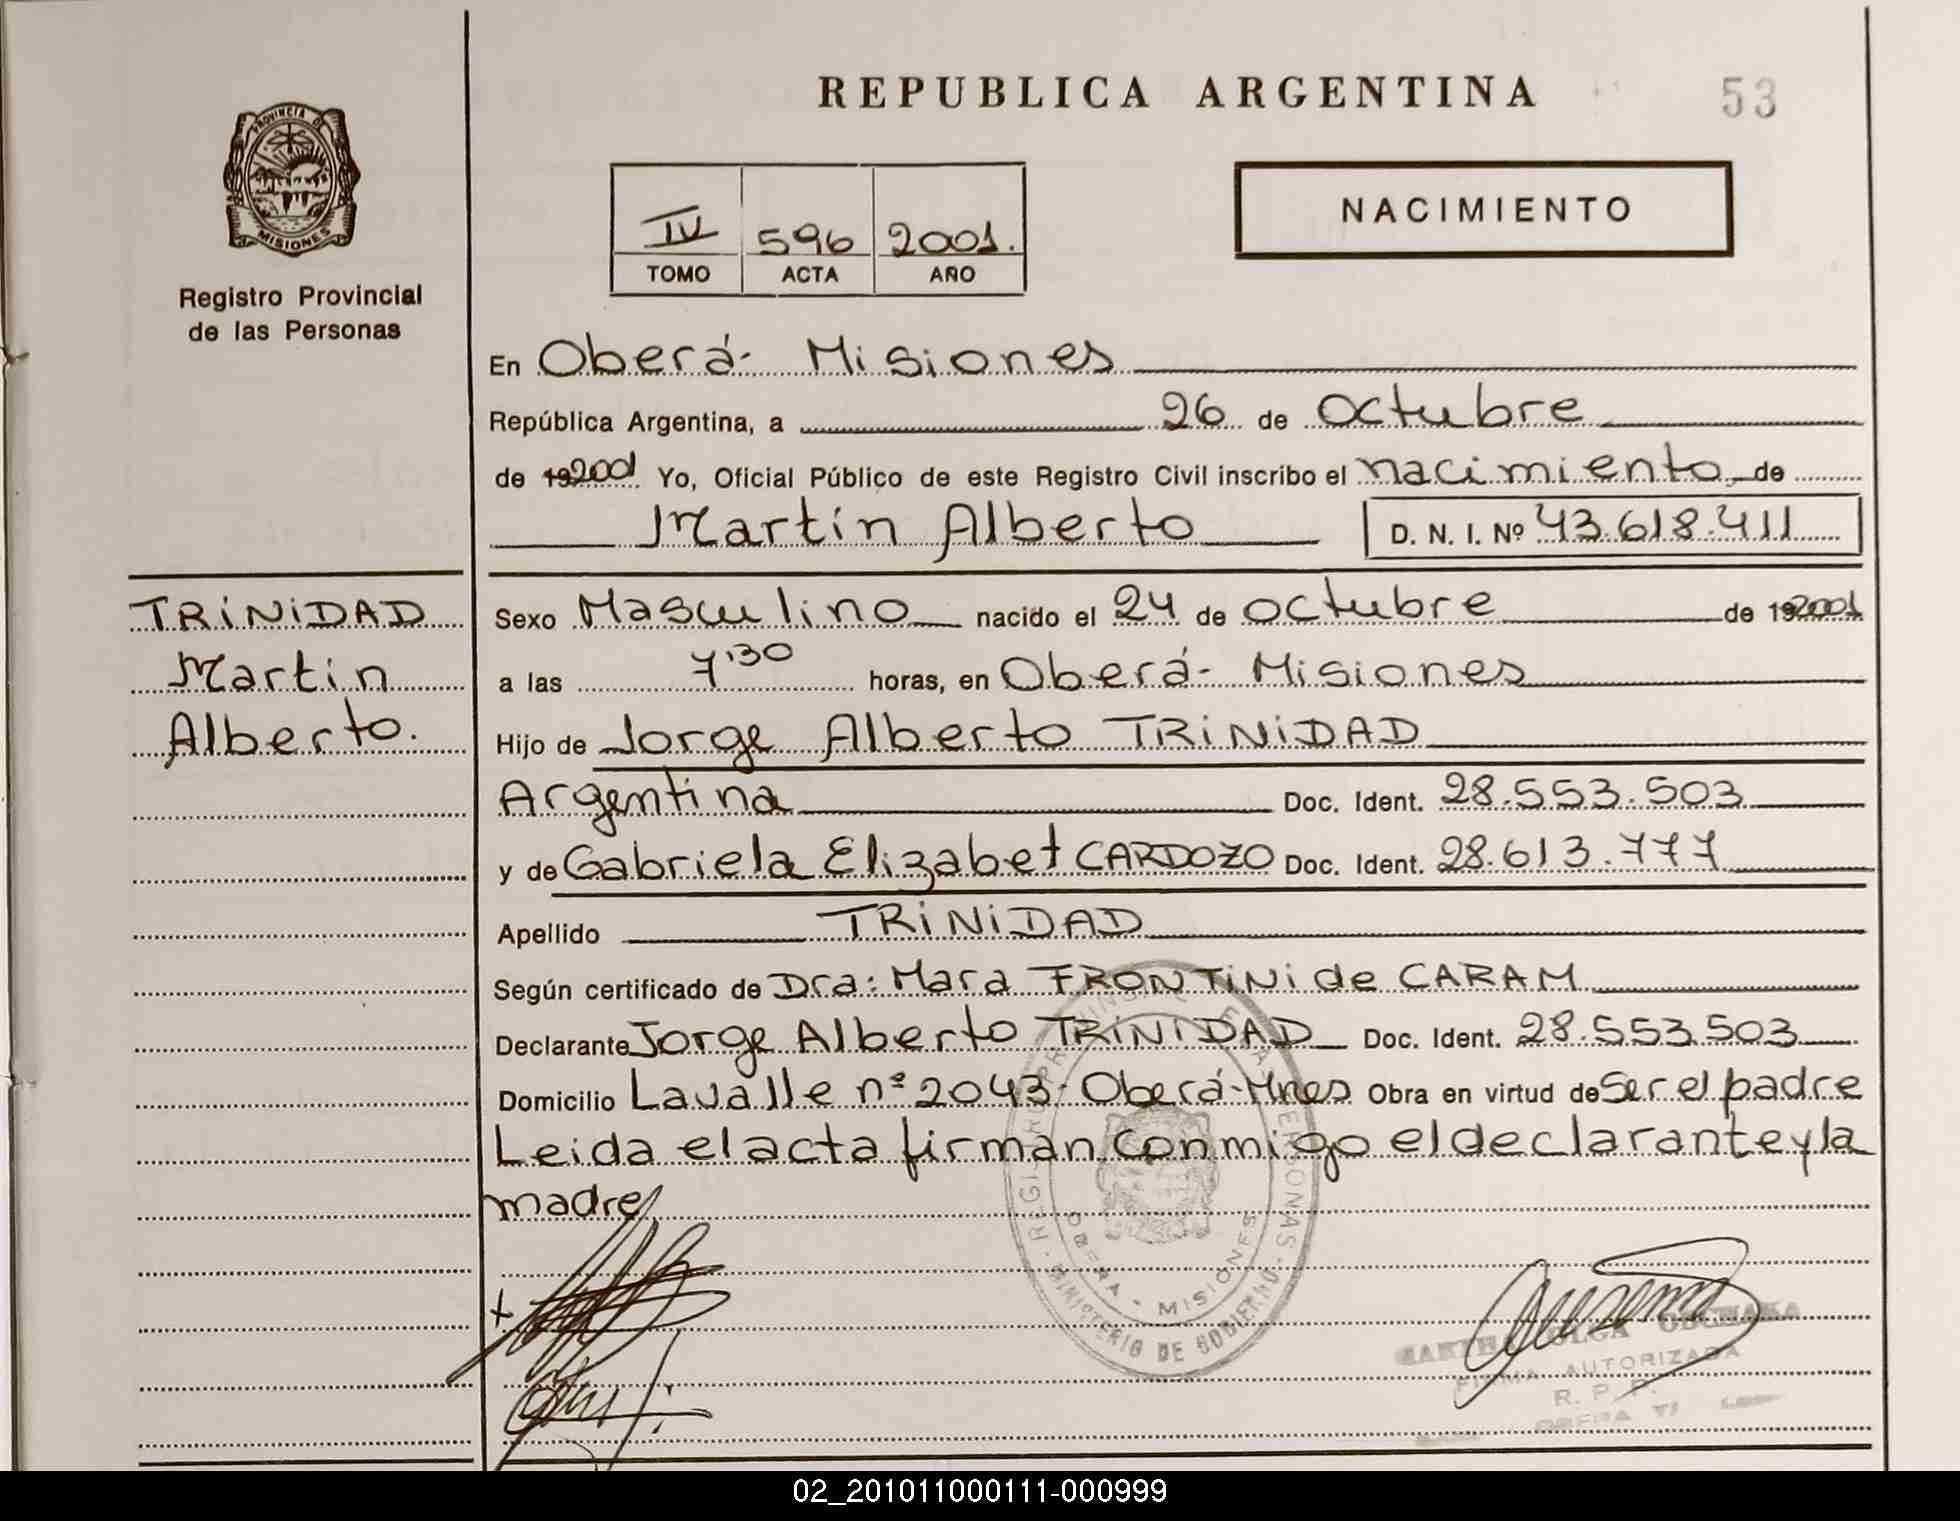 REPUBLICA ARGENTINA
53
PROVINCIA DE
MISIONES
Registro Provincial
de las Personas
IV 596 2001.
TOMO ACTA AÑO
NACIMIENTO
En Oberá- Misiones
República Argentina, a 26 de Octubre
de 19 2001 Yo, Oficial Público de este Registro Civil inscribo el nacimiento de
Martín Alberto D. N. I. Nº 43.618.411
TRINIDAD
Martin
Alberto.
Sexo Masculino nacido el 24 de octubre de 19 2001
a las 7'30 horas, en Oberá- Misiones
Hijo de Jorge Alberto TRINIDAD
Argentina Doc. Ident. 28.553.503
y de Gabriela Elizabet CARDOZO Doc. Ident. 28.613.777
Apellido TRINIDAD
Según certificado de Dra: Mara FRONTINI de CARAM
Declarante Jorge Alberto TRINIDAD Doc. Ident. 28.553.503
Domicilio Lavalle nº 2043- Oberá-Mnes Obra en virtud de Ser el padre
Leida el acta firman conmigo el declarante y la
madre
OBERA - MISIONES
MINISTERIO DE GOBIERNO
OLGA
FIRMA AUTORIZADA
R. P. P.
02_201011000111-000999